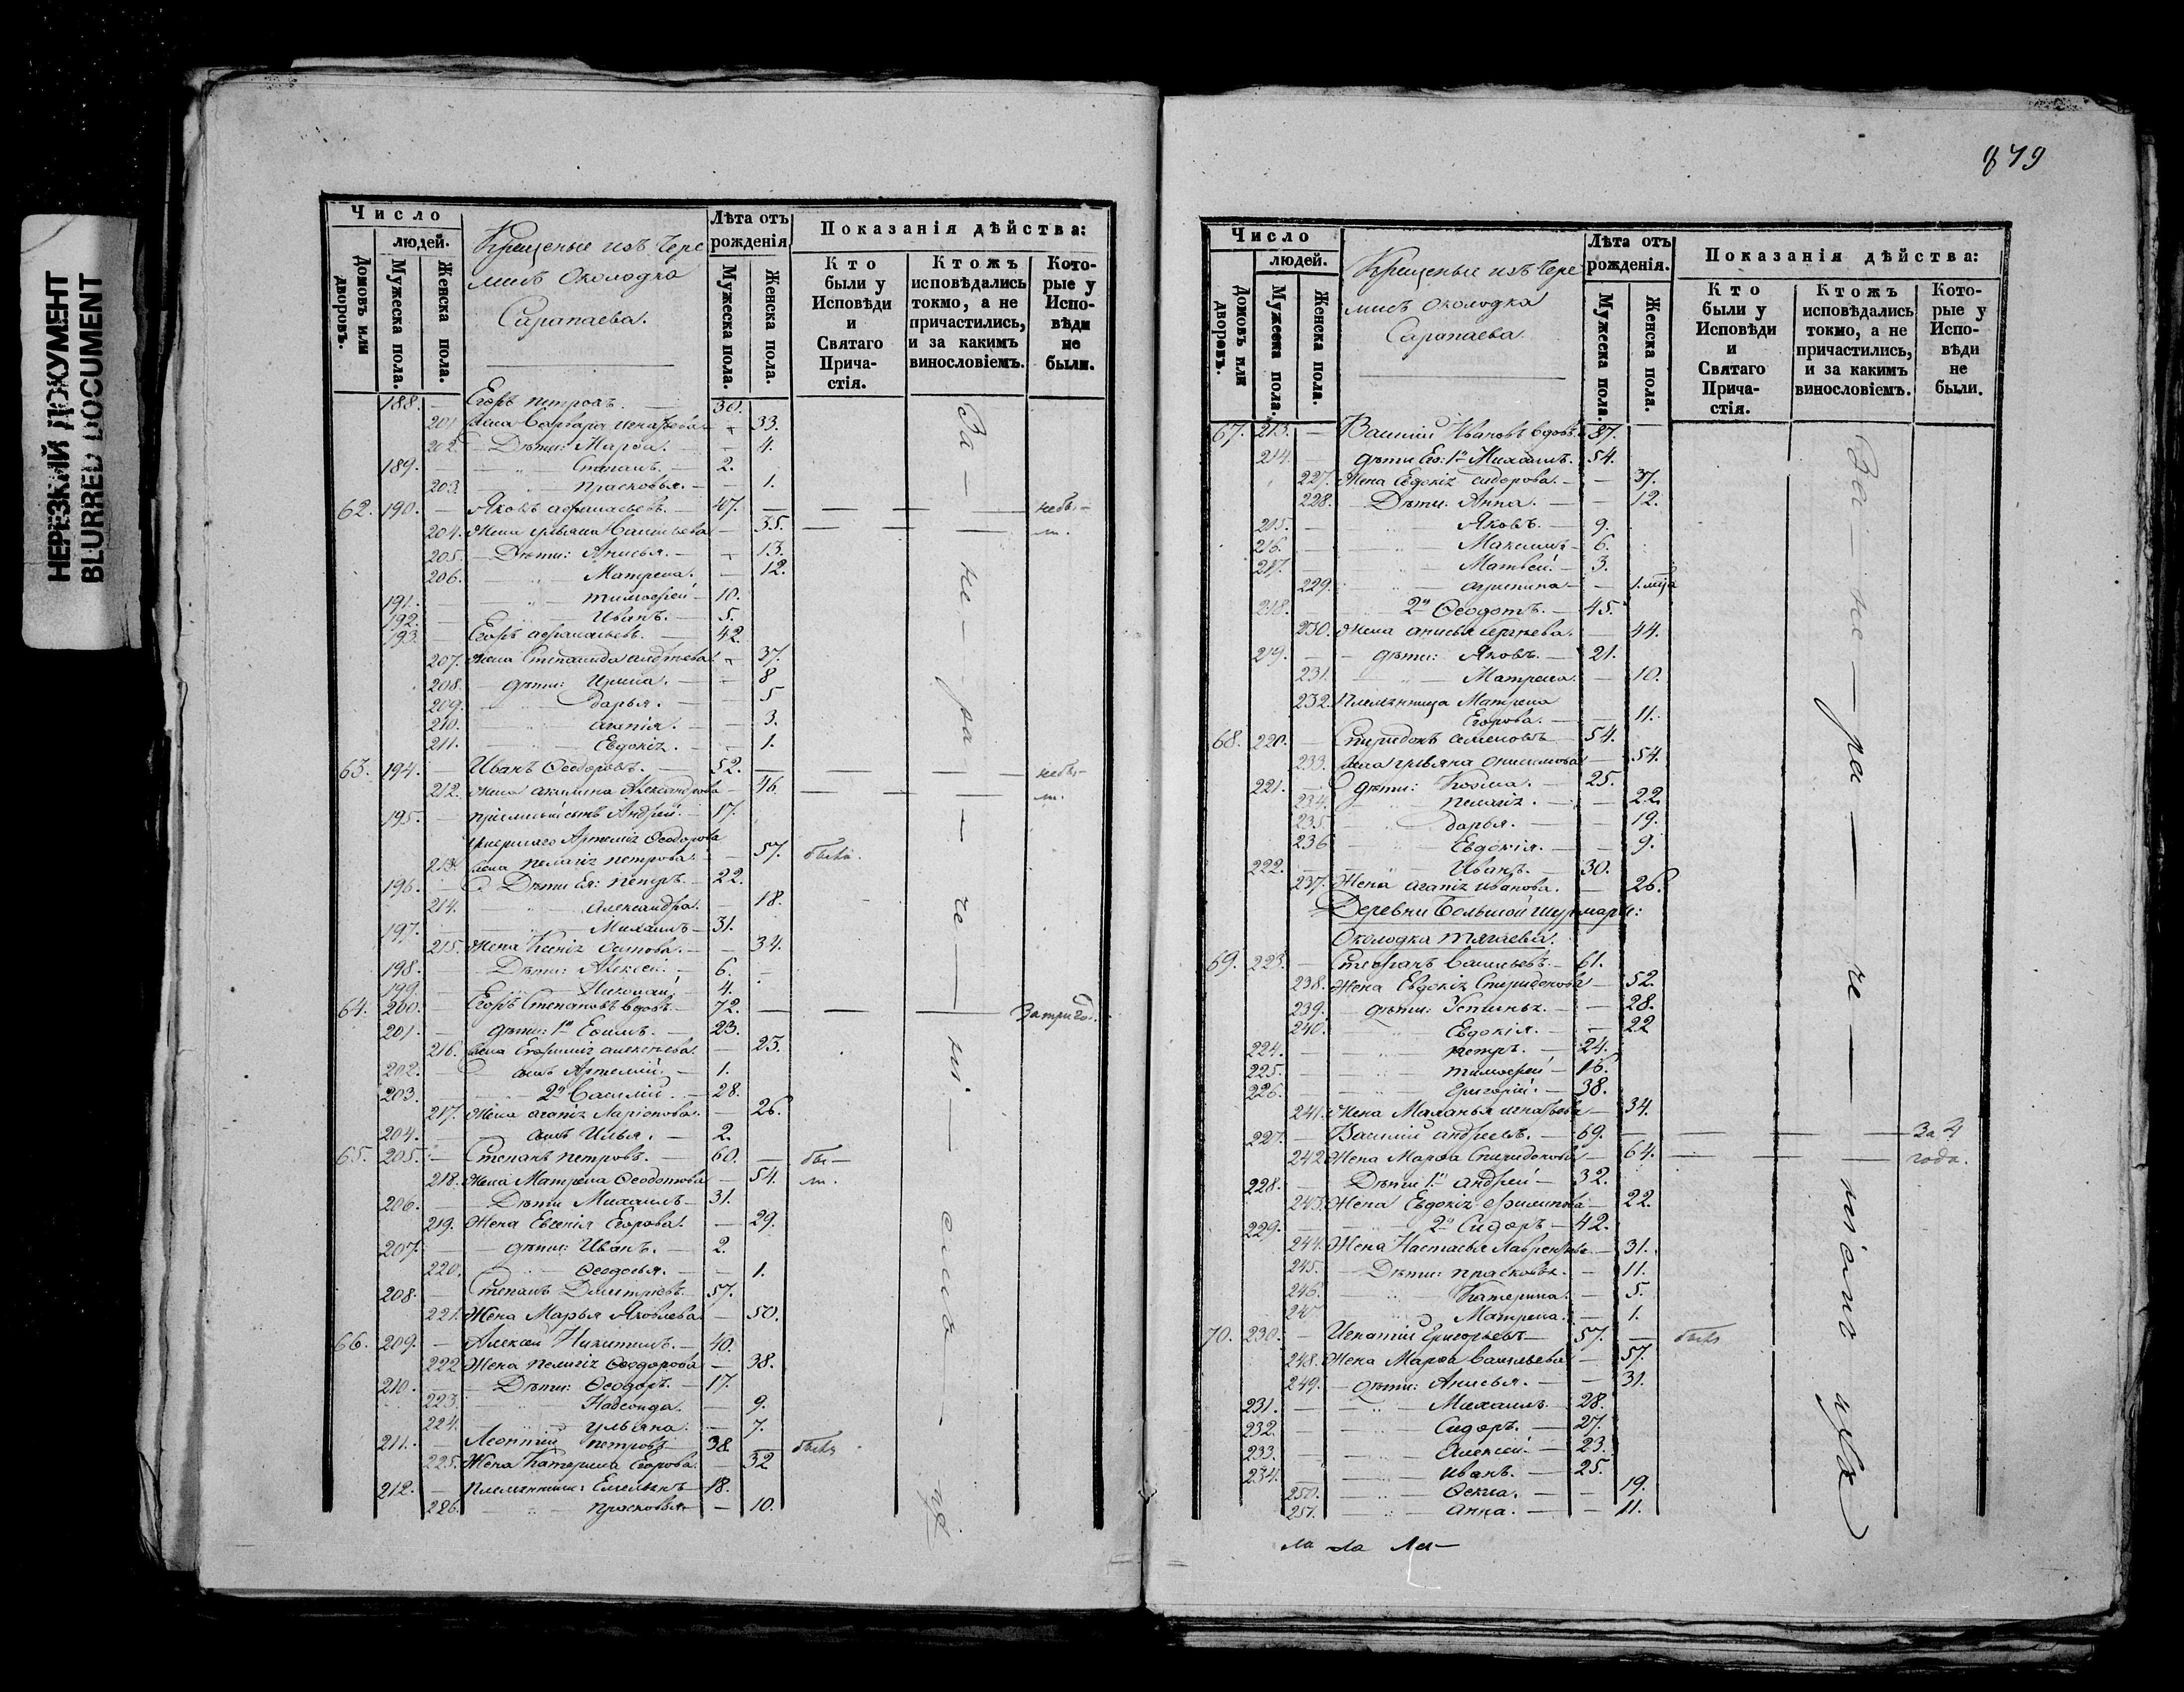 НЕРЕЗКИЙ ДОКУМЕНТ
BLURRED DOCUMENT
Число
людей.
Домовъ или дворовъ.
Мужеска пола.
Женска пола.
Крещеные изъ Чере
мисъ Околодка
Сарапаева.
Лѣта отъ рожденія
Мужеска пола.
Женска пола.
Показанія дѣйства:
Кто были у Исповѣди и Святаго Прича-стія.
Ктожъ исповѣдались токмо, а не причастились, и за какимъ винословіемъ.
Кото-рые у Испо-вѣди не были.
188. — Егоръ Петровъ. — 30.
201 Жена Варвара Игнатьева — 33.
202. — Дѣти: Марѳа. — — 4.
189. — Степанъ. — 2.
203 Прасковья. — — 1.
62. 190. — Яковъ Афанасьевъ. — 47. — — — небы-
204. Жена Ульяна Васильева — 35. — — — ли.
205. — Дѣти: Анисья. — — 13.
206. — Матрена. — 12.
191. — Тимоѳей — 10.
192. — Иванъ. — 5.
193. — Егоръ Афанасьевъ. — 42.
207. Жена Степанида Андреева — 37.
208. — дѣти: Ирина. — — 8
209. — Дарья. — — 5
210. — Агапія. — — 3.
211. — Евдокія. — — 1.
63. 194. — Иванъ Ѳеодоровъ. — 52. — — — небы-
212. Жена Акилина Александрова — 46 — — ли.
195. — Пріемышъ Андрей. — 17.
Умершаго Артемія Ѳеодорова
213. Жена Пелагія Петрова. — 57. была.
196. — Дѣти Ея: Петръ. — 22.
214. — Александра. — 18.
197. — Михаилъ — 31.
215. Жена Ксенія — 34.
198. — Дѣти: Алексей. — 6. —
199. — Николай. — 4.
64. 200. — Егоръ Степановъ вдовъ. — 72. — — — За три го.
201. — дѣти: 1й Ефимъ. — 23.
216. Жена Евфимія Алексеева. — 23.
202. — сынъ Артемій. — 1.
203. — 2й Василій. — 28.
217. Жена Агапія Ларіонова. — 26.
204. — сынъ Илья. — 2.
65. 205. — Степанъ Петровъ. — 60. — бы-
218. Жена Матрена Ѳеодотова — 54. ли.
206. — Дѣти Михаилъ — 31.
219. Жена Евгенія Егорова. — 29.
207. — дѣти: Иванъ. — 2.
220. — Ѳеодосья. — — 1.
208. — Степанъ Дмитріевъ — 57.
221. Жена Марья Яковлева — 50.
66. 209. — Алексей Никитинъ. — 40.
222 Жена Пелагія Ѳеодорова — 38.
210. — Дѣти: Ѳеодоръ. — 17.
223. — — 9.
224. — Ульяна. — 7.
211. — Леонтій Петровъ — 38 — были
225. Жена Катерина Егорова. — 32
212. — Племянники: Емельянъ — 18.
226. — Прасковья — 10.
За — не — ра — че — ні — емъ
879
Число
людей.
Домовъ или дворовъ.
Мужеска пола.
Женска пола.
Крещеные изъ Чере
мисъ Околодка
Сарапаева
Лѣта отъ рожденія.
Мужеска пола.
Женска пола.
Показанія дѣйства:
Кто были у Исповѣди и Святаго Прича-стія.
Ктожъ исповѣдались токмо, а не причастились, и за какимъ винословіемъ.
Кото-рые у Испо-вѣди не были.
67. 213. — Василій Ивановъ вдовъ. 87.
214. — дѣти Его: 1й Михаилъ. 54.
227. Жена Евдокія Сидорова. — — 37.
228. — Дѣти: Анна. — — 12.
215. — Яковъ. — 9.
216. — Максимъ — 6.
217. — Матвей. — 3.
229. — Агрипина — — 1. мца
218. — 2й Ѳеодотъ. — 45.
230. Жена Анисья Сергѣева. — 44.
219. — дѣти: Яковъ. — 21.
231. — Матрена. — 10.
232. Племянница Матрена
Егорова. — — 11.
68. 220. — Спиридонъ Семеновъ — 54.
233. Жена Ульяна Онисимова — 54.
221. — дѣти: Козма. — 25.
234. — Пелагія. — — 22.
235. — Дарья. — — 19.
236 — Евдокія. — — 9.
222. — Иванъ. — 30.
237. Жена Агапія Иванова. — 26.
Деревни Большой Шурмары:
Околодка Тягаева.
69. 223. — Стефанъ Васильевъ. — 61.
238. Жена Евдокія Спиридонова — 52.
239. — дѣти: Устинья. — — 28.
240. — Евдокія. — — 22
224. — Петръ. — 24.
225. — Тимоѳей — 16.
226. — Григорій. — 38.
241. Жена Маланья Игнатьева — 34.
227. — Василій Андреевъ. — 69. — — — За 4
242 Жена Марѳа Спиридонова — 64. — — — года.
228. — Дѣти 1й Андрей — 32.
243. Жена Евдокія Филипова — 22.
229. — 2й Сидоръ — 42.
244. Жена Настасья Лаврентьева — 31.
245. — Дѣти: Прасковья. — — 11.
246. — Катерина. — 5.
247 — Матрена. — 1.
70. 230. — Игнатій Григорьевъ — 57. — были
248. Жена Марѳа Васильева — 57.
249. — дѣти: Анисья. — — 31.
231. — Михаилъ — 28.
232. — Сидоръ. — 27.
233. — Алексей. — 23.
234. — Иванъ. — 25.
250. — Ѳекла. — — 19.
251. — Анна. — — 11.
За — не — ра — че — ніемъ